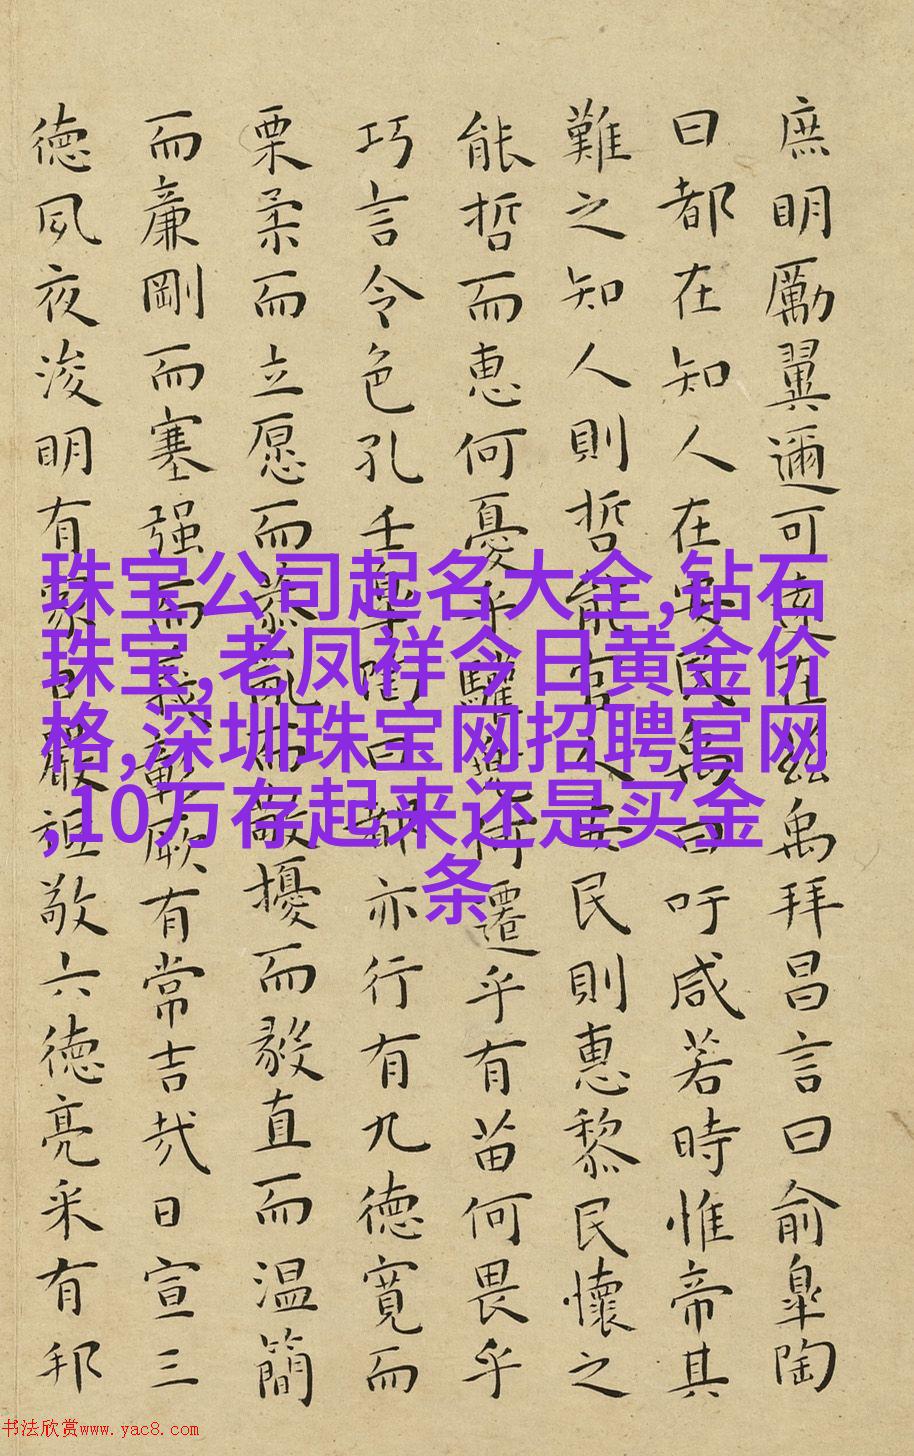 庶明勵翼邇可遠在茲禹拜昌言曰俞皐陶
曰都在知人在安民禹曰吁咸若時惟帝其
難之知人則哲能官人安民則惠黎民懷之
能哲而惠何憂乎驩兜何遷乎有苗何畏乎
巧言令色孔壬皐陶曰都亦行有九德寬而
栗柔而立愿而恭亂而敬擾而毅直而温簡
而廉剛而塞强而義彰厥有常吉哉日宣三
德夙夜浚明有家日嚴祗敬六德亮采有邦
珠宝公司起名大全,钻石
珠宝,老凤祥今日黄金价
格,深圳珠宝网招聘官网
,10万存起来还是买金
条
书法欣赏www.yac8.com